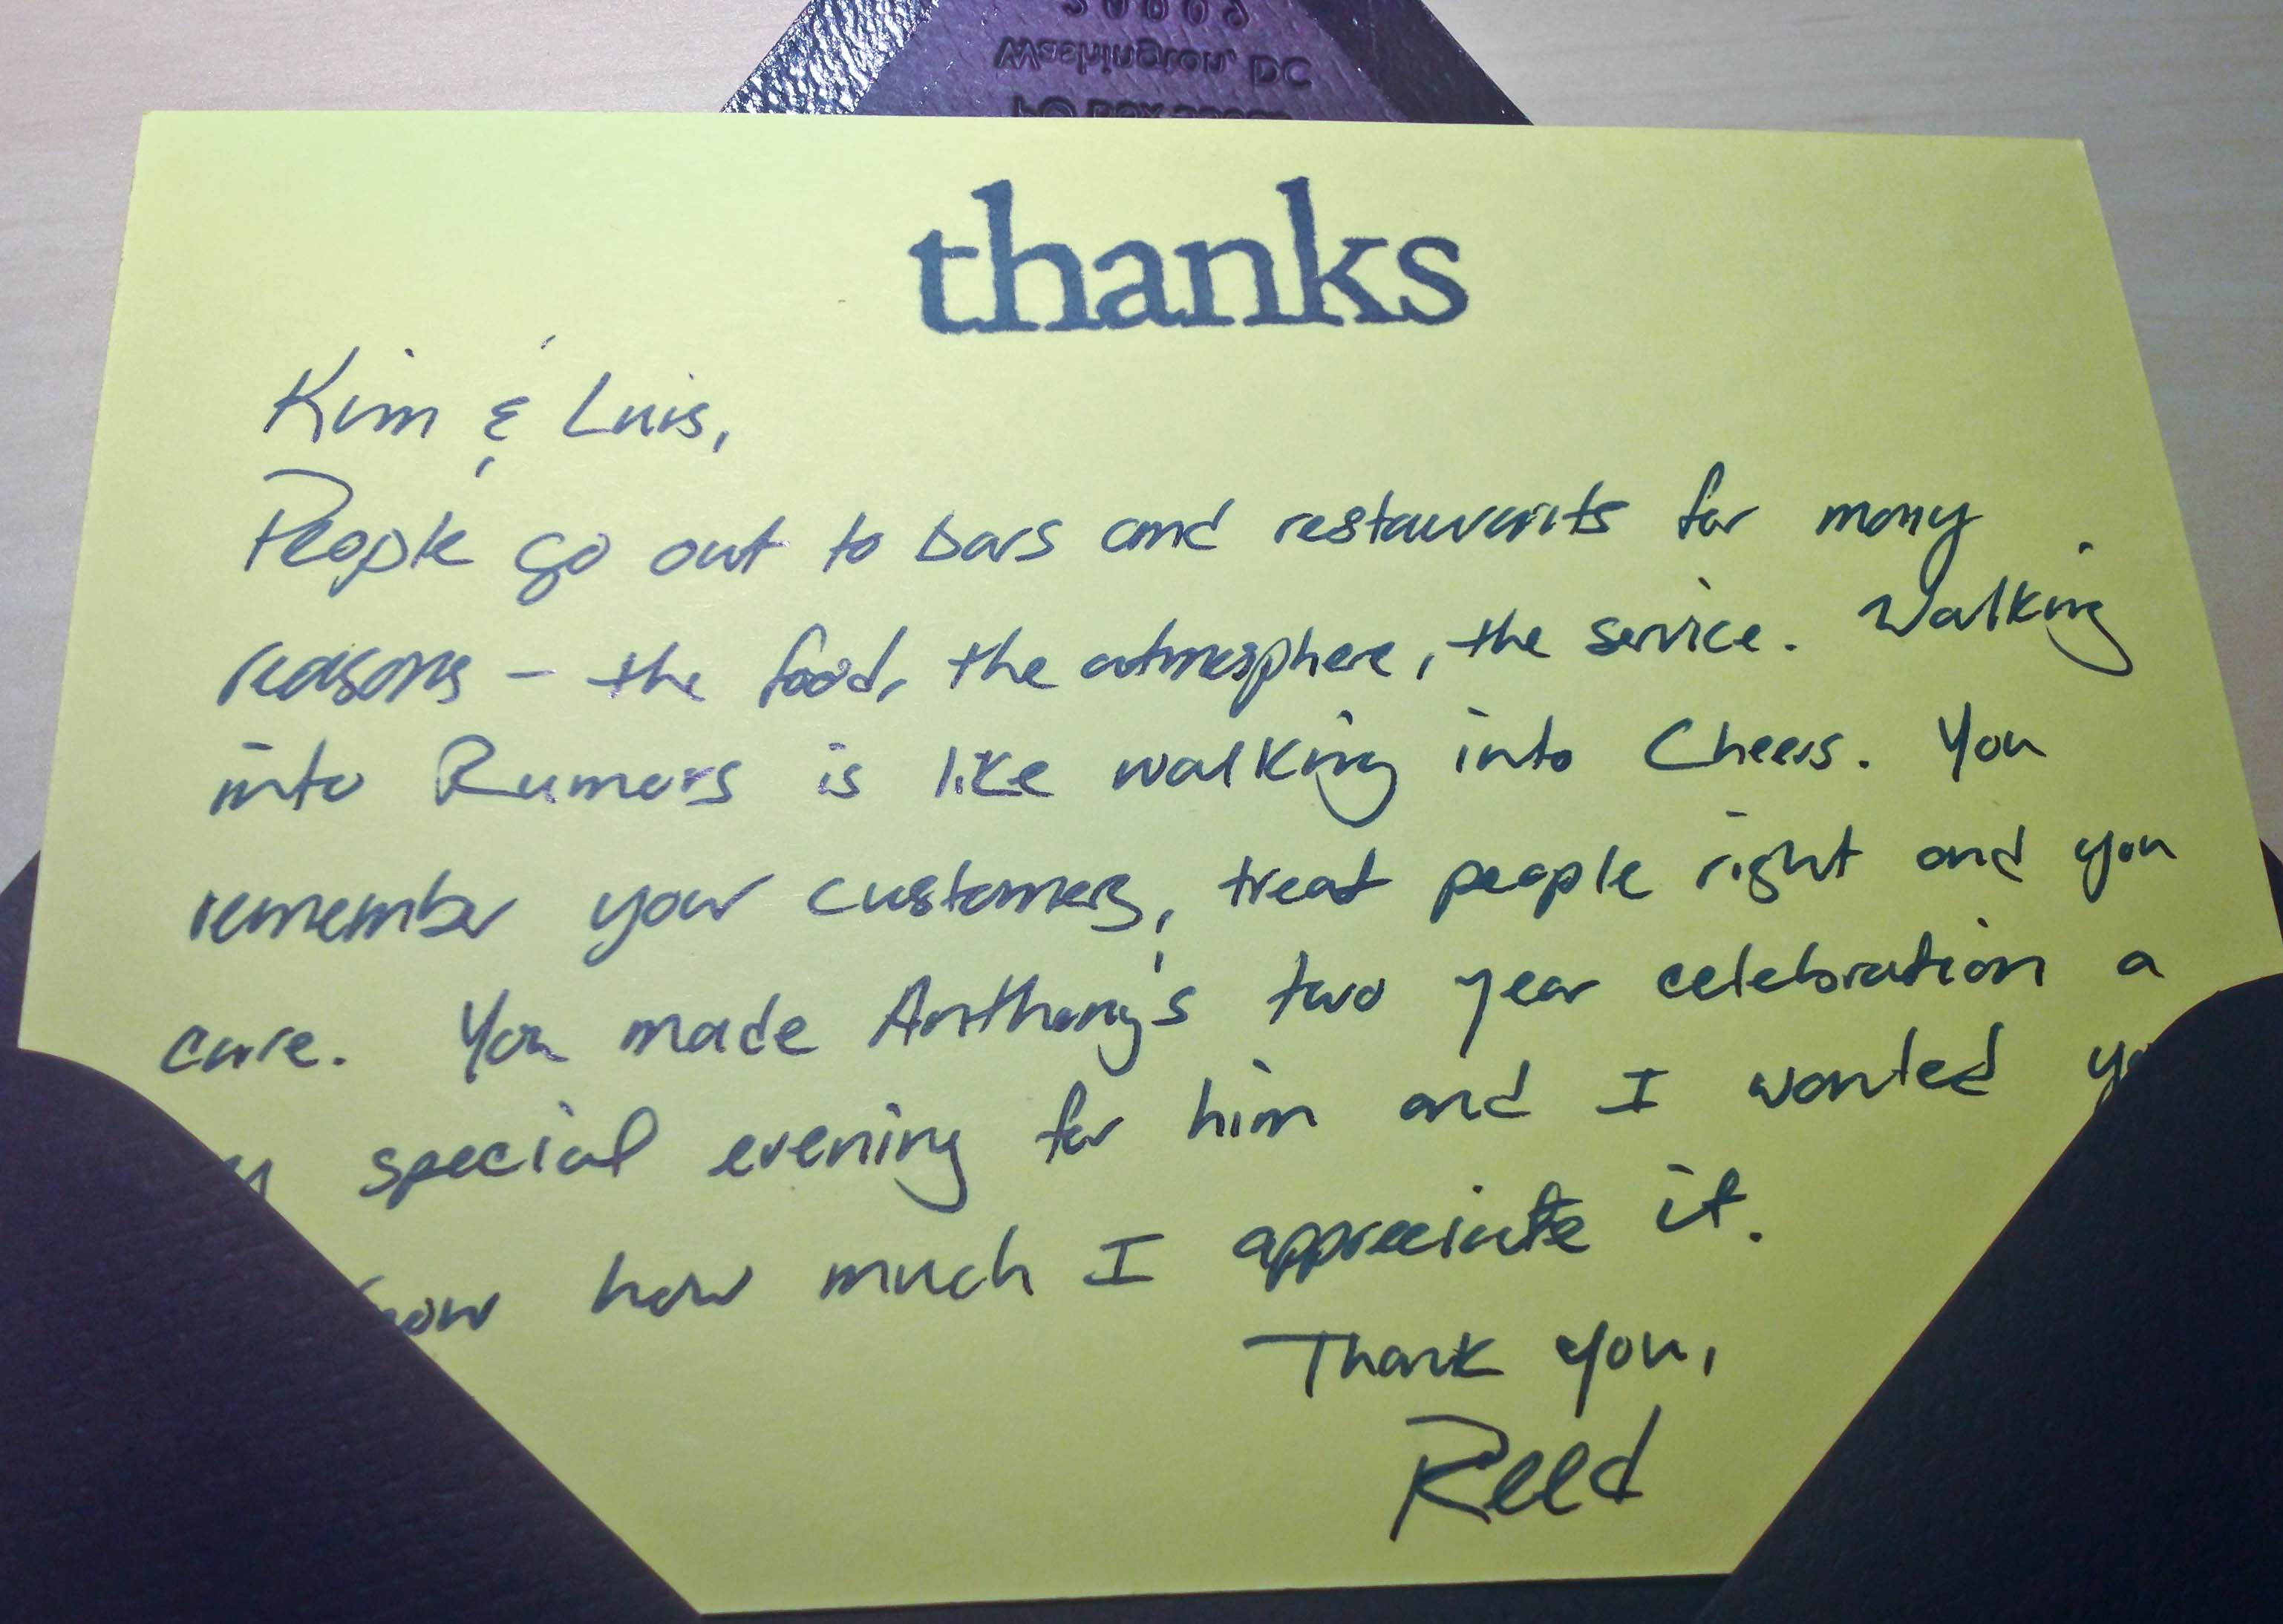 Washington, DC
thanks
Kim & Luis,
People go out to bars and restaurants for many
reasons – the food, the atmosphere, the service. Walking
into Rumors is like walking into Cheers. You
remember your customers, treat people right and you
care. You made Anthony's two year celebration a
special evening for him and I wanted
how much I appreciate it.
Thank you,
Reed